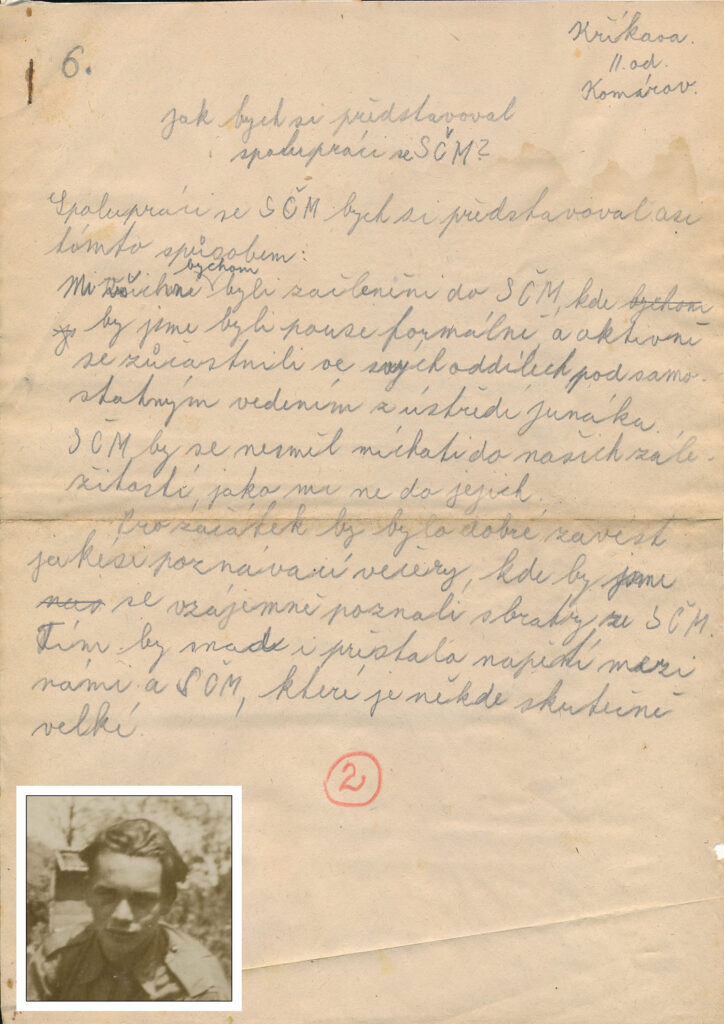 6.
Křikava.
II. od.
Komárov.
Jak bych si představoval
spolupráci se SČM?
Spolupráci se SČM bych si představoval asi
tímto způsobem:
Mi všichni bychom byli začleněni do SČM, kde bychom
by jsme byli pouse formálně, a aktivně
se zůčastnili ve svých oddílech pod samo-
statným vedením z ústředí junáka.
SČM by se nesměl míchati do našich zále-
žitostí, jako mi ne do jejich.
Pro začátek by bylo dobré zavést
jakési poznávací večery, kde by jsme
nás se vzájemně poznali s bratry ze SČM.
Tím by snad i přestalo napětí mezi
námi a SČM, které je někde skutečně
velké.
2